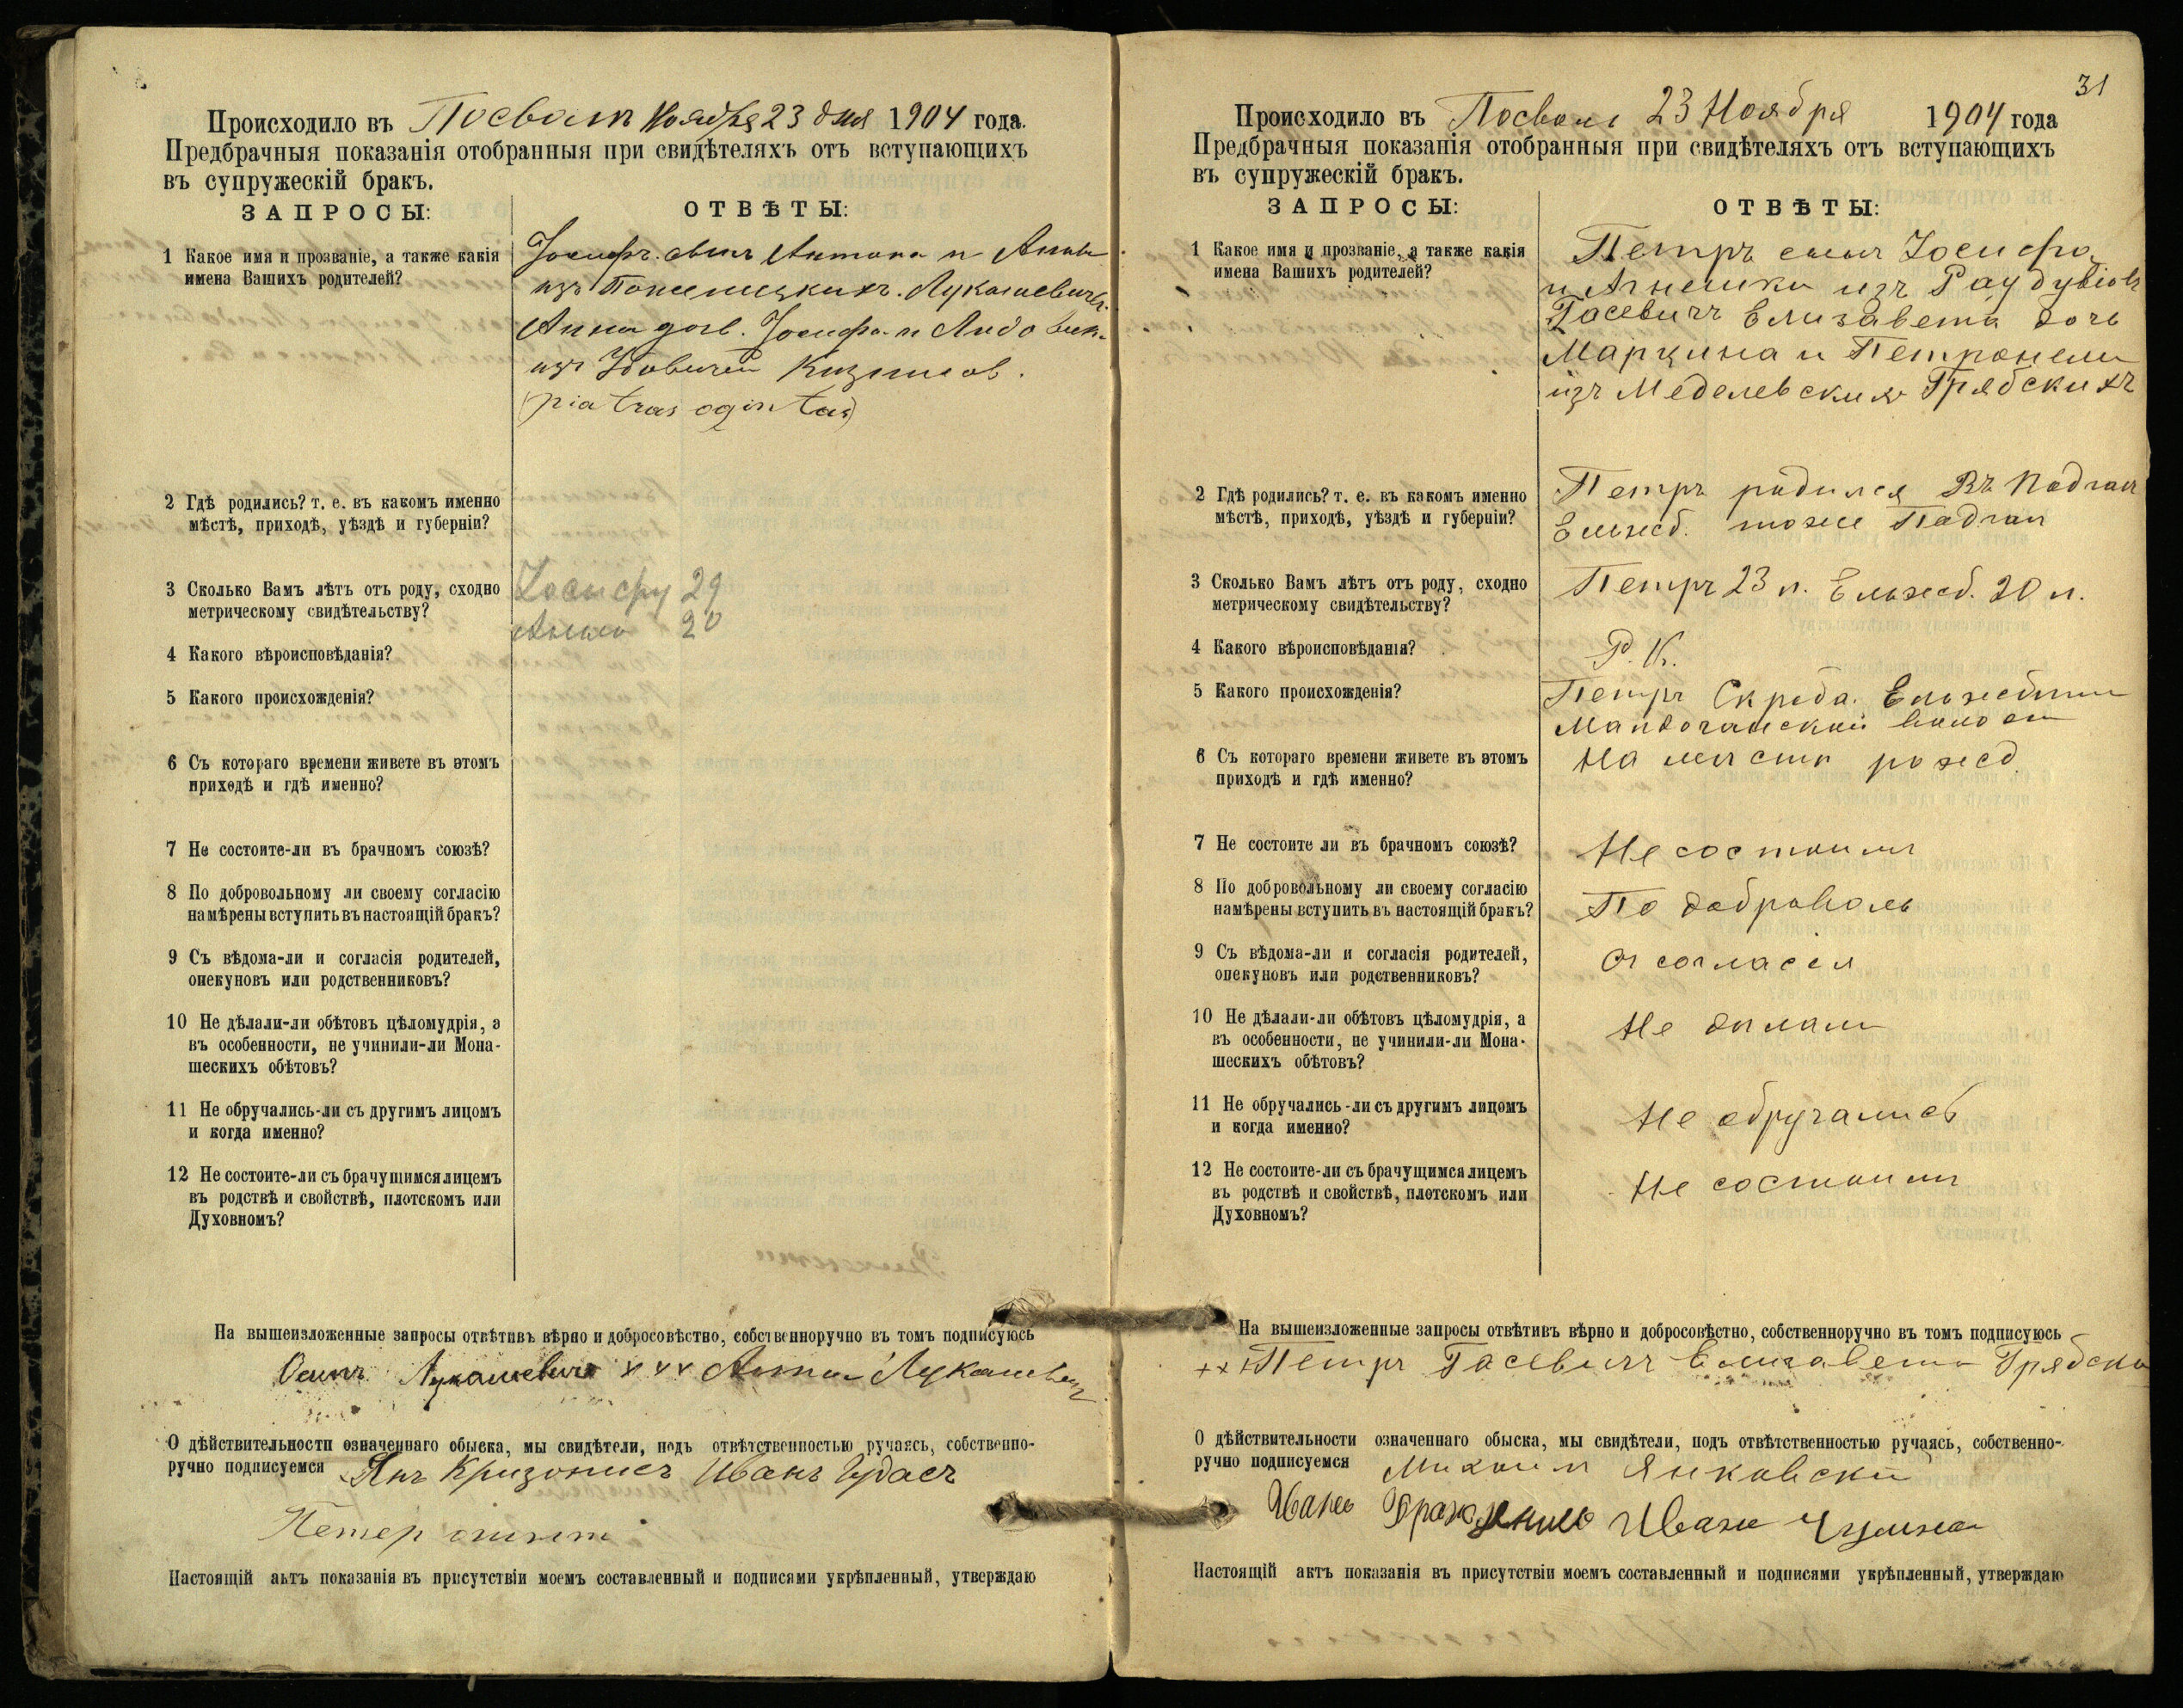 Происходило въ Посволь Ноября 23 дня 1904 года.
Предбрачныя показанія отобранныя при свидѣтеляхъ отъ вступающихъ
въ супружескій бракъ.
ЗАПРОСЫ:
ОТВѢТЫ:
1 Какое имя и прозваніе, а также какія
имена Вашихъ родителей?
Іосифъ сынъ Антона и Анны
изъ Лукашевичъ
Анна доч. Іосифа и Людовик.
из
(piatras ogintas)
2 Гдѣ родились? т. е. въ какомъ именно
мѣстѣ, приходѣ, уѣздѣ и губерніи?
3 Сколько Вамъ лѣтъ отъ роду, сходно
метрическому свидѣтельству?
Іосифу 29
Анна 20
4 Какого вѣроисповѣданія?
5 Какого происхожденія?
6 Съ котораго времени живете въ этомъ
приходѣ и гдѣ именно?
7 Не состоите-ли въ брачномъ союзѣ?
8 По добровольному ли своему согласію
намѣрены вступить въ настоящій бракъ?
9 Съ вѣдома-ли и согласія родителей,
опекуновъ или родственниковъ?
10 Не дѣлали-ли обѣтовъ цѣломудрія, а
въ особенности, не учинили-ли Мона-
шескихъ обѣтовъ?
11 Не обручались-ли съ другимъ лицомъ
и когда именно?
12 Не состоите-ли съ брачущимся лицемъ
въ родствѣ и свойствѣ, плотскомъ или
Духовномъ?
На вышеизложенные запросы отвѣтивъ вѣрно и добросовѣстно, собственноручно въ томъ подписуюсь
Осипъ Лукашевичъ ххх Анна Лукашевич
О дѣйствительности означеннаго обыска, мы свидѣтели, подъ отвѣтственностью ручаясь, собственно-
ручно подписуемся Янъ Кризонисъ Иванъ Гудасъ
Петер
Настоящій актъ показанія въ присутствіи моемъ составленный и подписями укрѣпленный, утверждаю
31
Происходило въ Посволь 23 Ноября 1904 года
Предбрачныя показанія отобранныя при свидѣтеляхъ отъ вступающихъ
въ супружескій бракъ.
ЗАПРОСЫ:
ОТВѢТЫ:
1 Какое имя и прозваніе, а также какія
имена Вашихъ родителей?
Петръ сынъ Іосифа
и Агнешки изъ Раудувіовъ
Гасевичъ Елизавета дочь
Марцина и Петронели
изъ Меделевских Грябскихъ
2 Гдѣ родились? т. е. въ какомъ именно
мѣстѣ, приходѣ, уѣздѣ и губерніи?
Петръ родился Въ
Ельжб. тоже
3 Сколько Вамъ лѣтъ отъ роду, сходно
метрическому свидѣтельству?
Петръ 23 л. Ельжб. 20 л.
4 Какого вѣроисповѣданія?
Р. К.
5 Какого происхожденія?
Петръ
6 Съ котораго времени живете въ этомъ
приходѣ и гдѣ именно?
На мѣстѣ рожд
7 Не состоите ли въ брачномъ союзѣ?
Не состоимъ
8 По добровольному ли своему согласію
намѣрены вступить въ настоящій бракъ?
По доброволь
9 Съ вѣдома-ли и согласія родителей,
опекуновъ или родственниковъ?
Съ согласія
10 Не дѣлали-ли обѣтовъ цѣломудрія, а
въ особенности, не учинили-ли Мона-
шескихъ обѣтовъ?
Не дѣлали
11 Не обручались-ли съ другимъ лицомъ
и когда именно?
Не обручались
12 Не состоите-ли съ брачущимся лицемъ
въ родствѣ и свойствѣ, плотскомъ или
Духовномъ?
Не состоимъ
На вышеизложенные запросы отвѣтивъ вѣрно и добросовѣстно, собственноручно въ томъ подписуюсь
+++ Петръ Гасевичъ Елизавета Грябска
О дѣйствительности означеннаго обыска, мы свидѣтели, подъ отвѣтственностью ручаясь, собственно-
ручно подписуемся Михаилъ Янковски
Иванъ Иванъ
Настоящій актъ показанія въ присутствіи моемъ составленный и подписями укрѣпленный, утверждаю